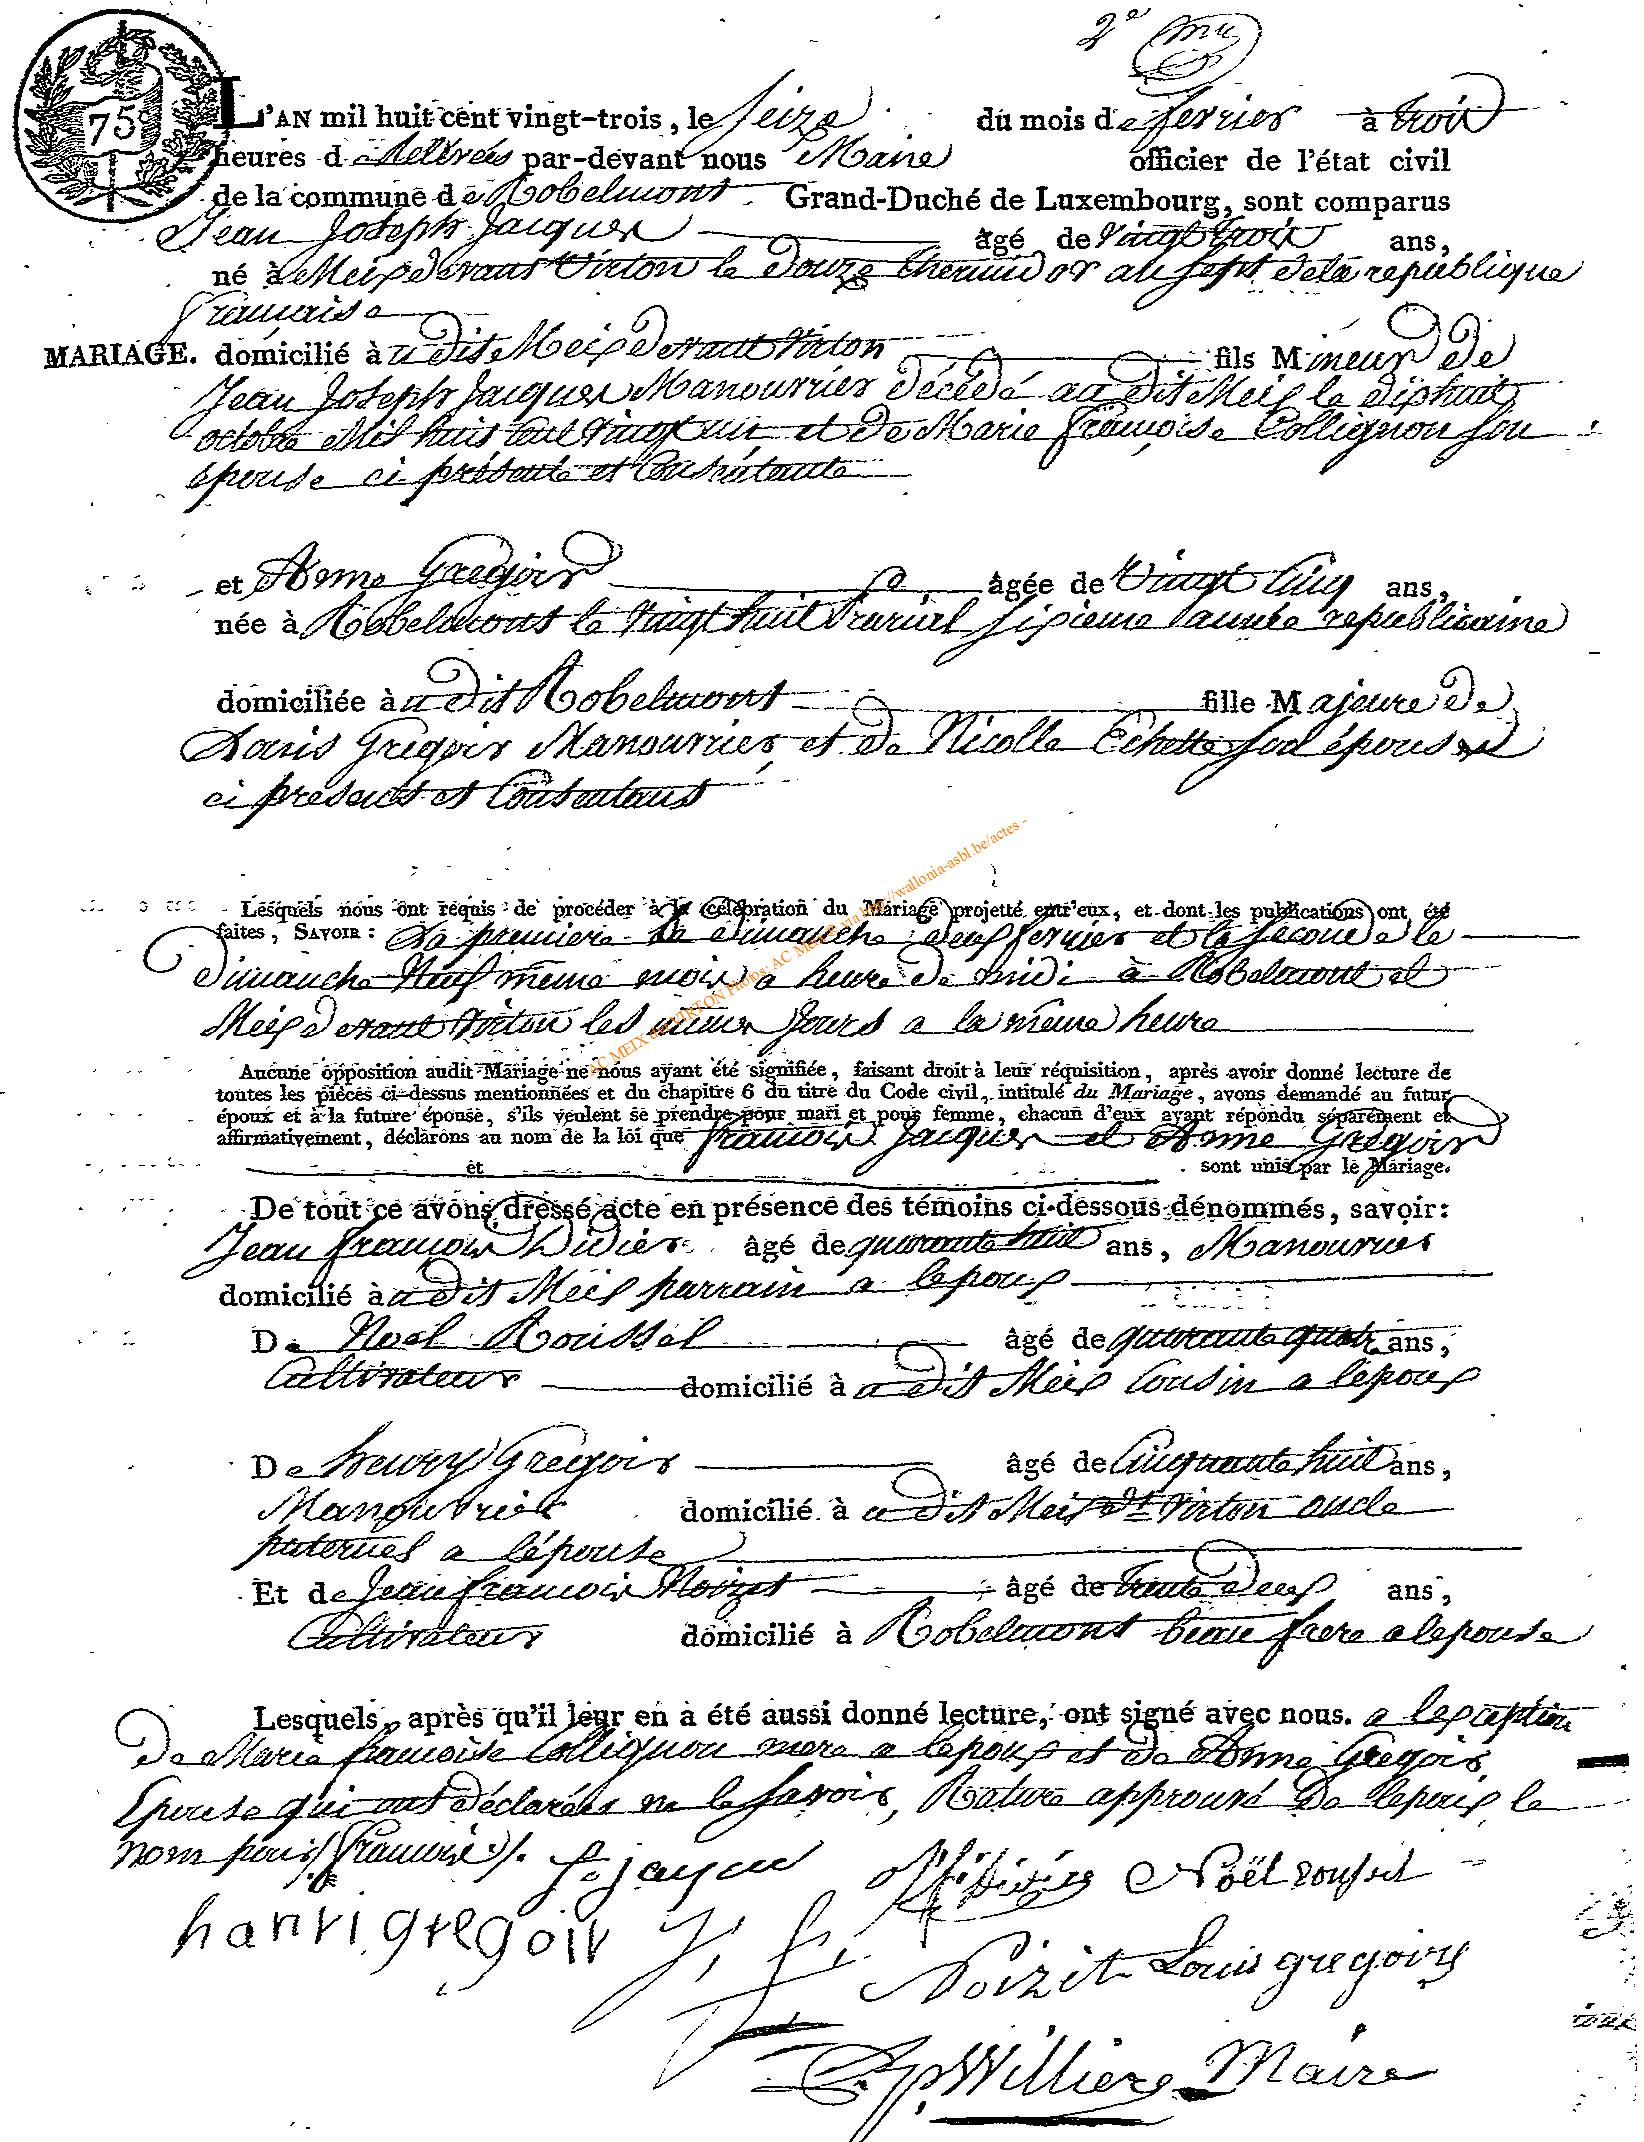 2e
75c
L'AN mil huit cent vingt-trois, le seize du mois de fevrier à trois
heures de relevées par-devant nous Maire officier de l'état civil
de la commune de Robelmont Grand-Duché de Luxembourg, sont comparus
Jean Joseph Jacques âgé de vingt trois ans,
né à Meix devant Virton le douze thermidor an sept de la republique
française
MARIAGE. domicilié à u dit Meix devant Virton fils Mineur de
Jean Joseph Jacques Manouvrier décédé au dit Meix le dixhuit
octobre Mil huit cent vingt un et de Marie françoise Collignon son
epouse ci présente et Consentante
et Anne Gregoir âgée de Vingt Cinq ans,
née à Robelmont le vingt huit Prerial sixieme année republicaine
domiciliée à u dit Robelmont fille Majeure de
Louis Gregoir Manouvrier et de Nicolle Echette son épouse
ci presents et Consentans
Lesquels nous ont requis de procéder à la célébration du Mariage projetté entr'eux, et dont les publications ont été
faites, SAVOIR : La premiere le dimanche deux fevrier et la seconde le
dimanche Neuf même mois a heure de midi à Robelmont et
Meix devant Virton les mêmes jours a la même heure
Aucune opposition audit Mariage ne nous ayant été signifiée, faisant droit à leur réquisition, après avoir donné lecture de
toutes les pièces ci-dessus mentionnées et du chapitre 6 du titre du Code civil, intitulé du Mariage, avons demandé au futur
époux et à la future épouse, s'ils veulent se prendre pour mari et pour femme, chacun d'eux ayant répondu séparément et
affirmativement, déclarons au nom de la loi que françois Jacques et Anne Gregoir
et sont unis par le Mariage.
De tout ce avons dressé acte en présence des témoins ci-dessous dénommés, savoir:
Jean françois Didier âgé de quarante huit ans, Manouvrier
domicilié à u dit Meix parrain a lepoux
De Noel Roussel âgé de quarante quatre ans,
Cultivateur domicilié à u dit Meix Cousin a lépoux
De henry Gregoir âgé de Cinquante huit ans,
Manouvrier domicilié à u dit Meix dt Virton oncle
paternel a lépouse
Et de Jean françois Noizet âgé de trente deux ans,
Cultivateur domicilié à Robelmont beau frere a lepouse
Lesquels, après qu'il leur en a été aussi donné lecture, ont signé avec nous. a lexception
de Marie francoise Collignon mere a lepoux et de Anne Gregoir
Epouse qui ont déclarées ne le savoir, Rature approuvé de lepoux le
nom pour (françois).
Noël roussel
hanri gregoir
Noizet Louis gregoire
Willieme Maire